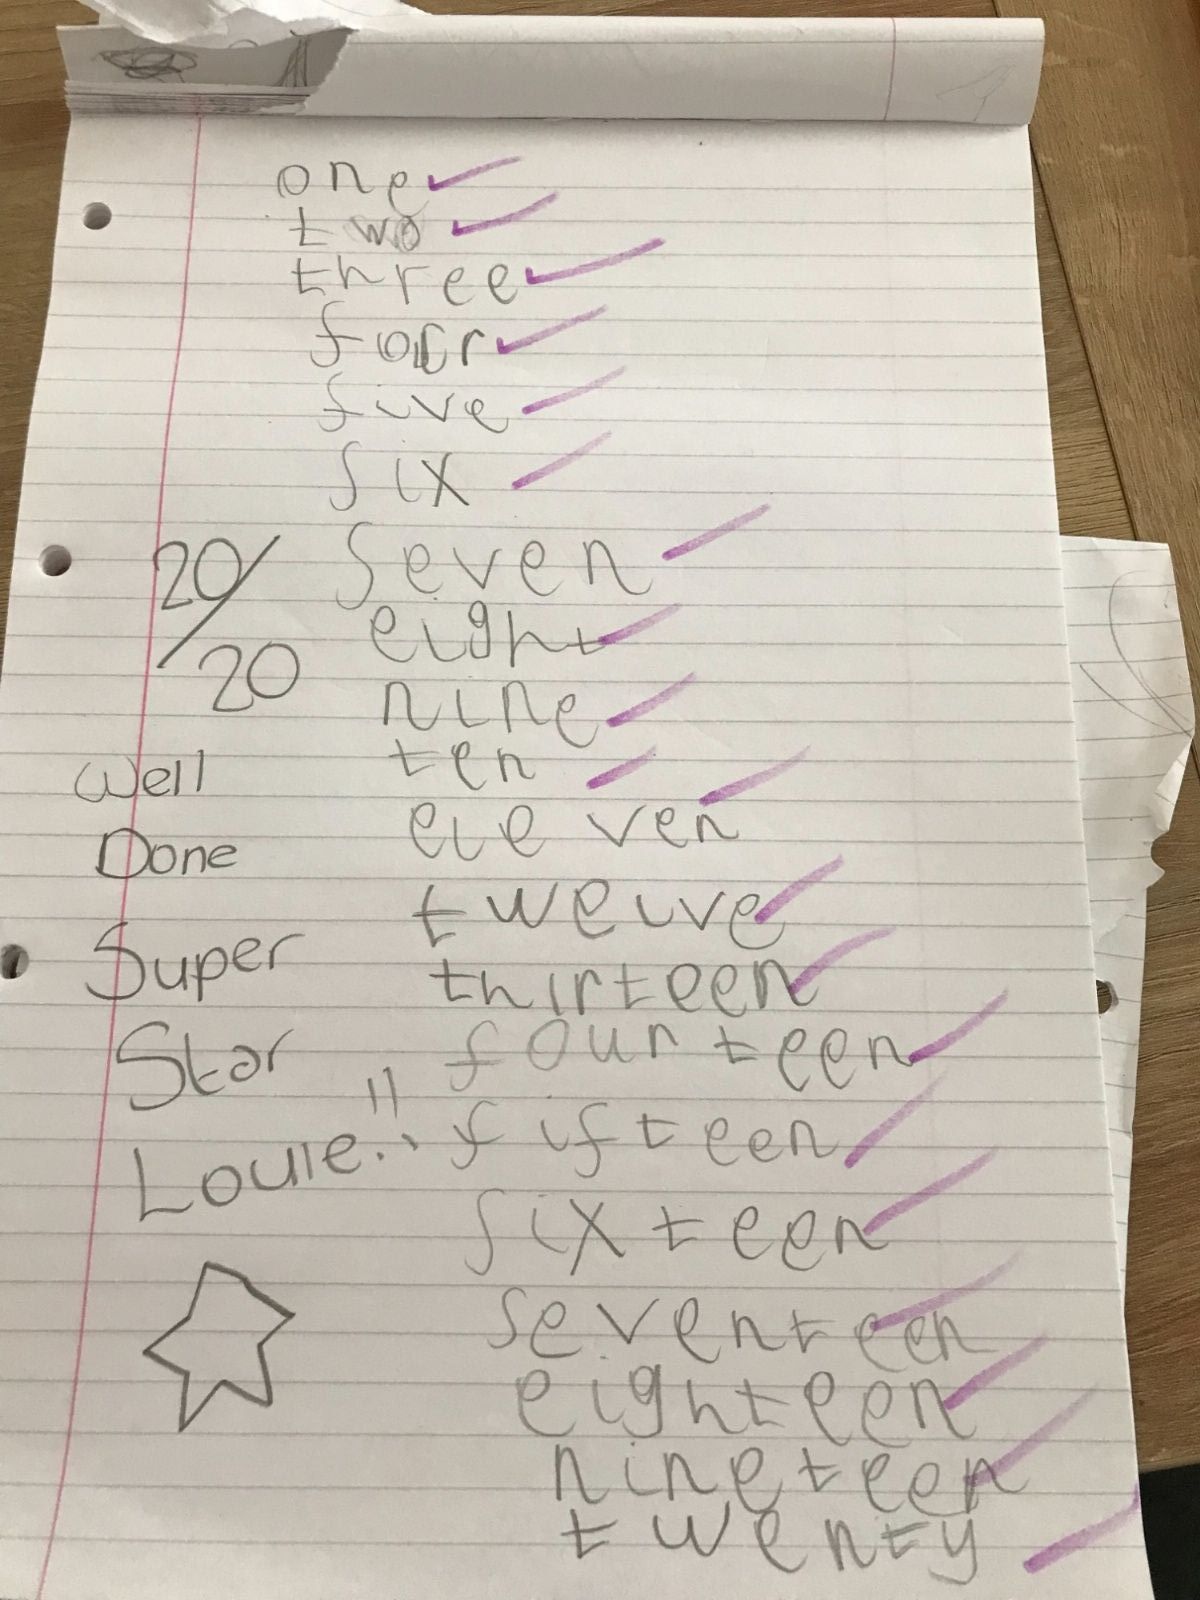 one
two
three
four
five
six
seven
eight
nine
ten
eleven
twelve
thirteen
fourteen
fifteen
sixteen
seventeen
eighteen
nineteen
twenty
20/20
Well
Done
Super
Star
Louie!!